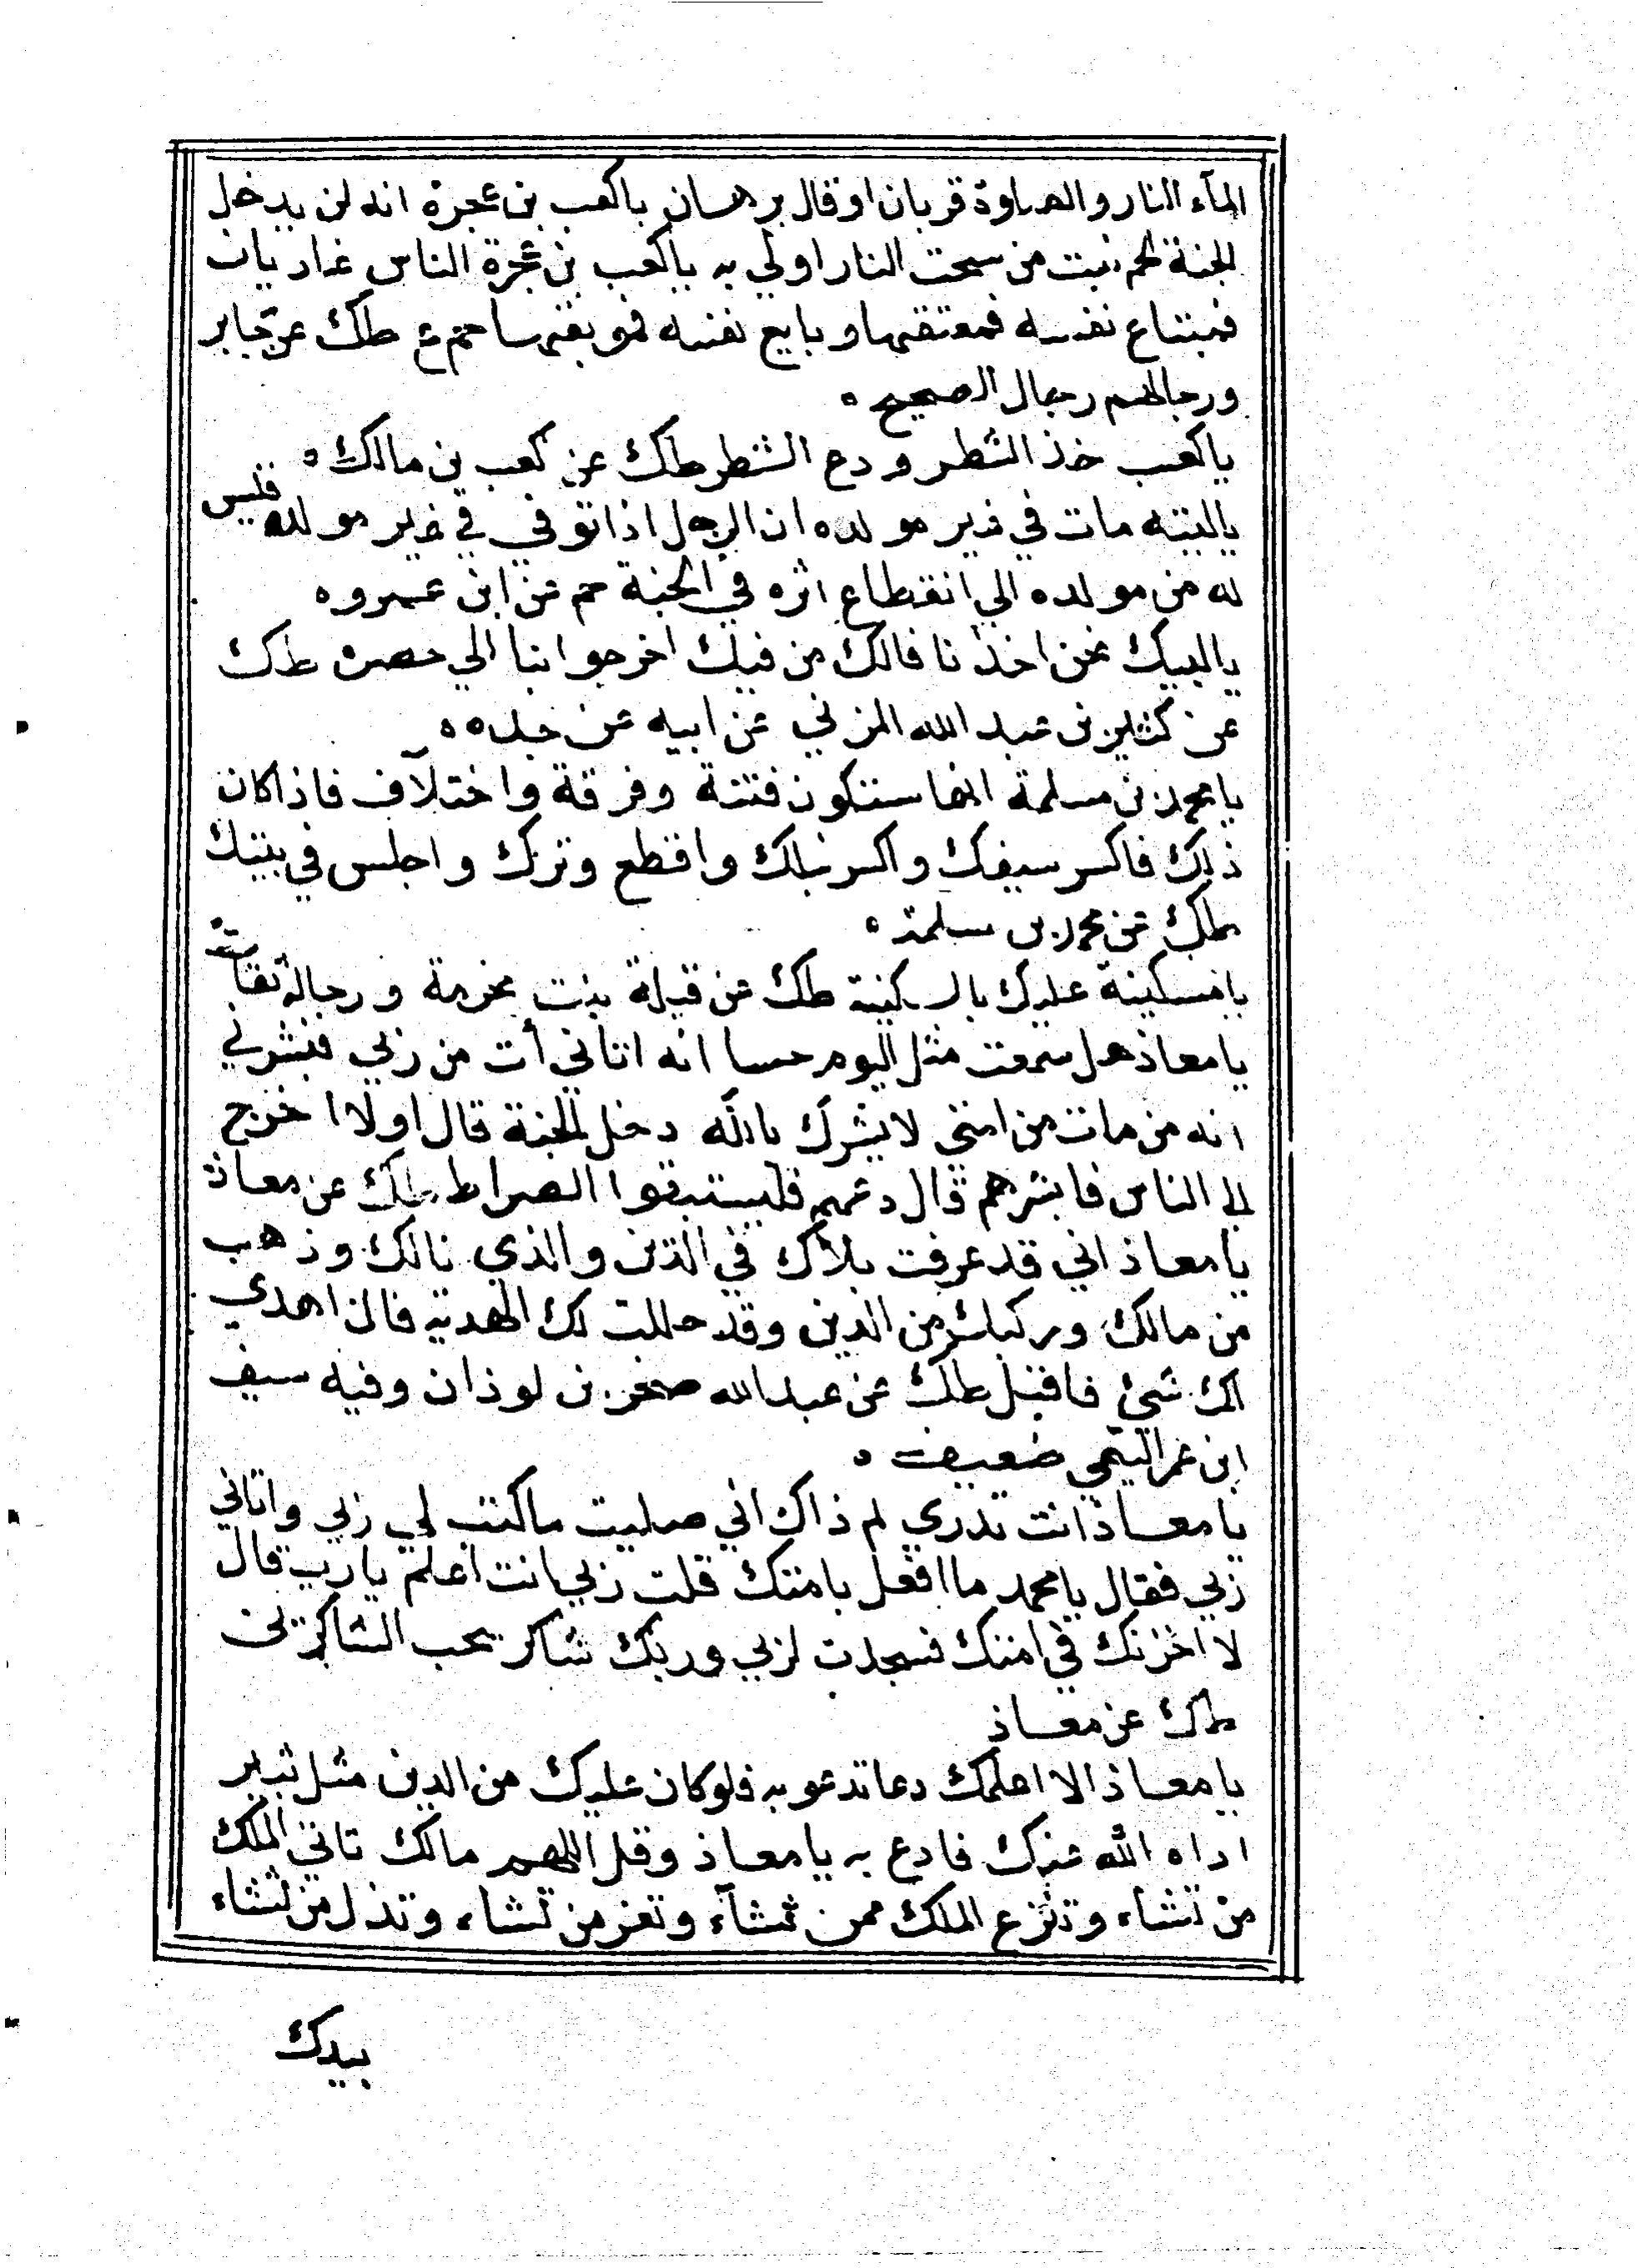 المآء النار والصلوة قربان او قال برهان ياكعب بن عجرة انه لن يدخل
الجنة لحم نبت من سحت النار اولي به ياكعب بن عجرة الناس غاديان
فمبتاع نفسه فمعتقها وبايع نفسه فموبقها حم ع طك عن جابر
ورجالهم رجال الصحيح
ياكعب خذ الشطر ودع الشطر طك عن كعب بن مالك
ياليته مات في غير مولده ان الرجل اذا توفي في غير مولده قليس
له من مولده الي انقطاع اثره في الجنة حم عن ابن عمرو
يالبيك نحن اخذنا فالك من فيك اخرجوا بنا الي خضره طك
عن كثير بن عبد الله المزني عن ابيه عن جده
يا محمد بن مسلمة انها ستكون فتنة وفرقة واختلآف فاذا كان
ذلك فاكسر سيفك واكسر نبلك واقطع وترك واجلس في بيتك
طك عن محمد بن مسلمة
يا مسكينة عليك بالسكينة طك عن قيلة بنت مخرمة ورجاله ثقات
يا معاذ هل سمعت مثل اليوم حسا انه اتاني أت من ربي فبشرني
انه من مات من امتي لا يشرك بالله دخل الجنة قال اولا اخرج
الي الناس فابشرهم قال دعهم فليستبقوا الصراط طك عن معاذ
يا معاذ اني قد عرفت بلاك في الدين والذي نالك وذهب
من مالك وركبك من الدين وقد حللت لك الهدية فان اهدي
لك شيئ فاقبل طك عن عبد الله صخر بن لوذان وفيه سيف
ابن عمر التيمي ضعيف
يا معاذ انت تدري لم ذاك اني صليت ما كتب لي ربي واتاني
ربي فقال يا محمد ما افعل بامتك قلت ربي انت اعلم يا رب قال
لا اخزنك في امتك فسجدت لربي وربك شاكر يحب الشاكرين
طك عن معاذ
يا معاذ الا اعلمك دعا تدعو به فلو كان عليك من الدين مثل ثبير
اداه الله عنك فادع به يا معاذ وقل اللهم مالك تاتي الملك
من تشاء وتنزع الملك ممن تشآء وتعز من تشاء وتذل من تشاء
بيدك